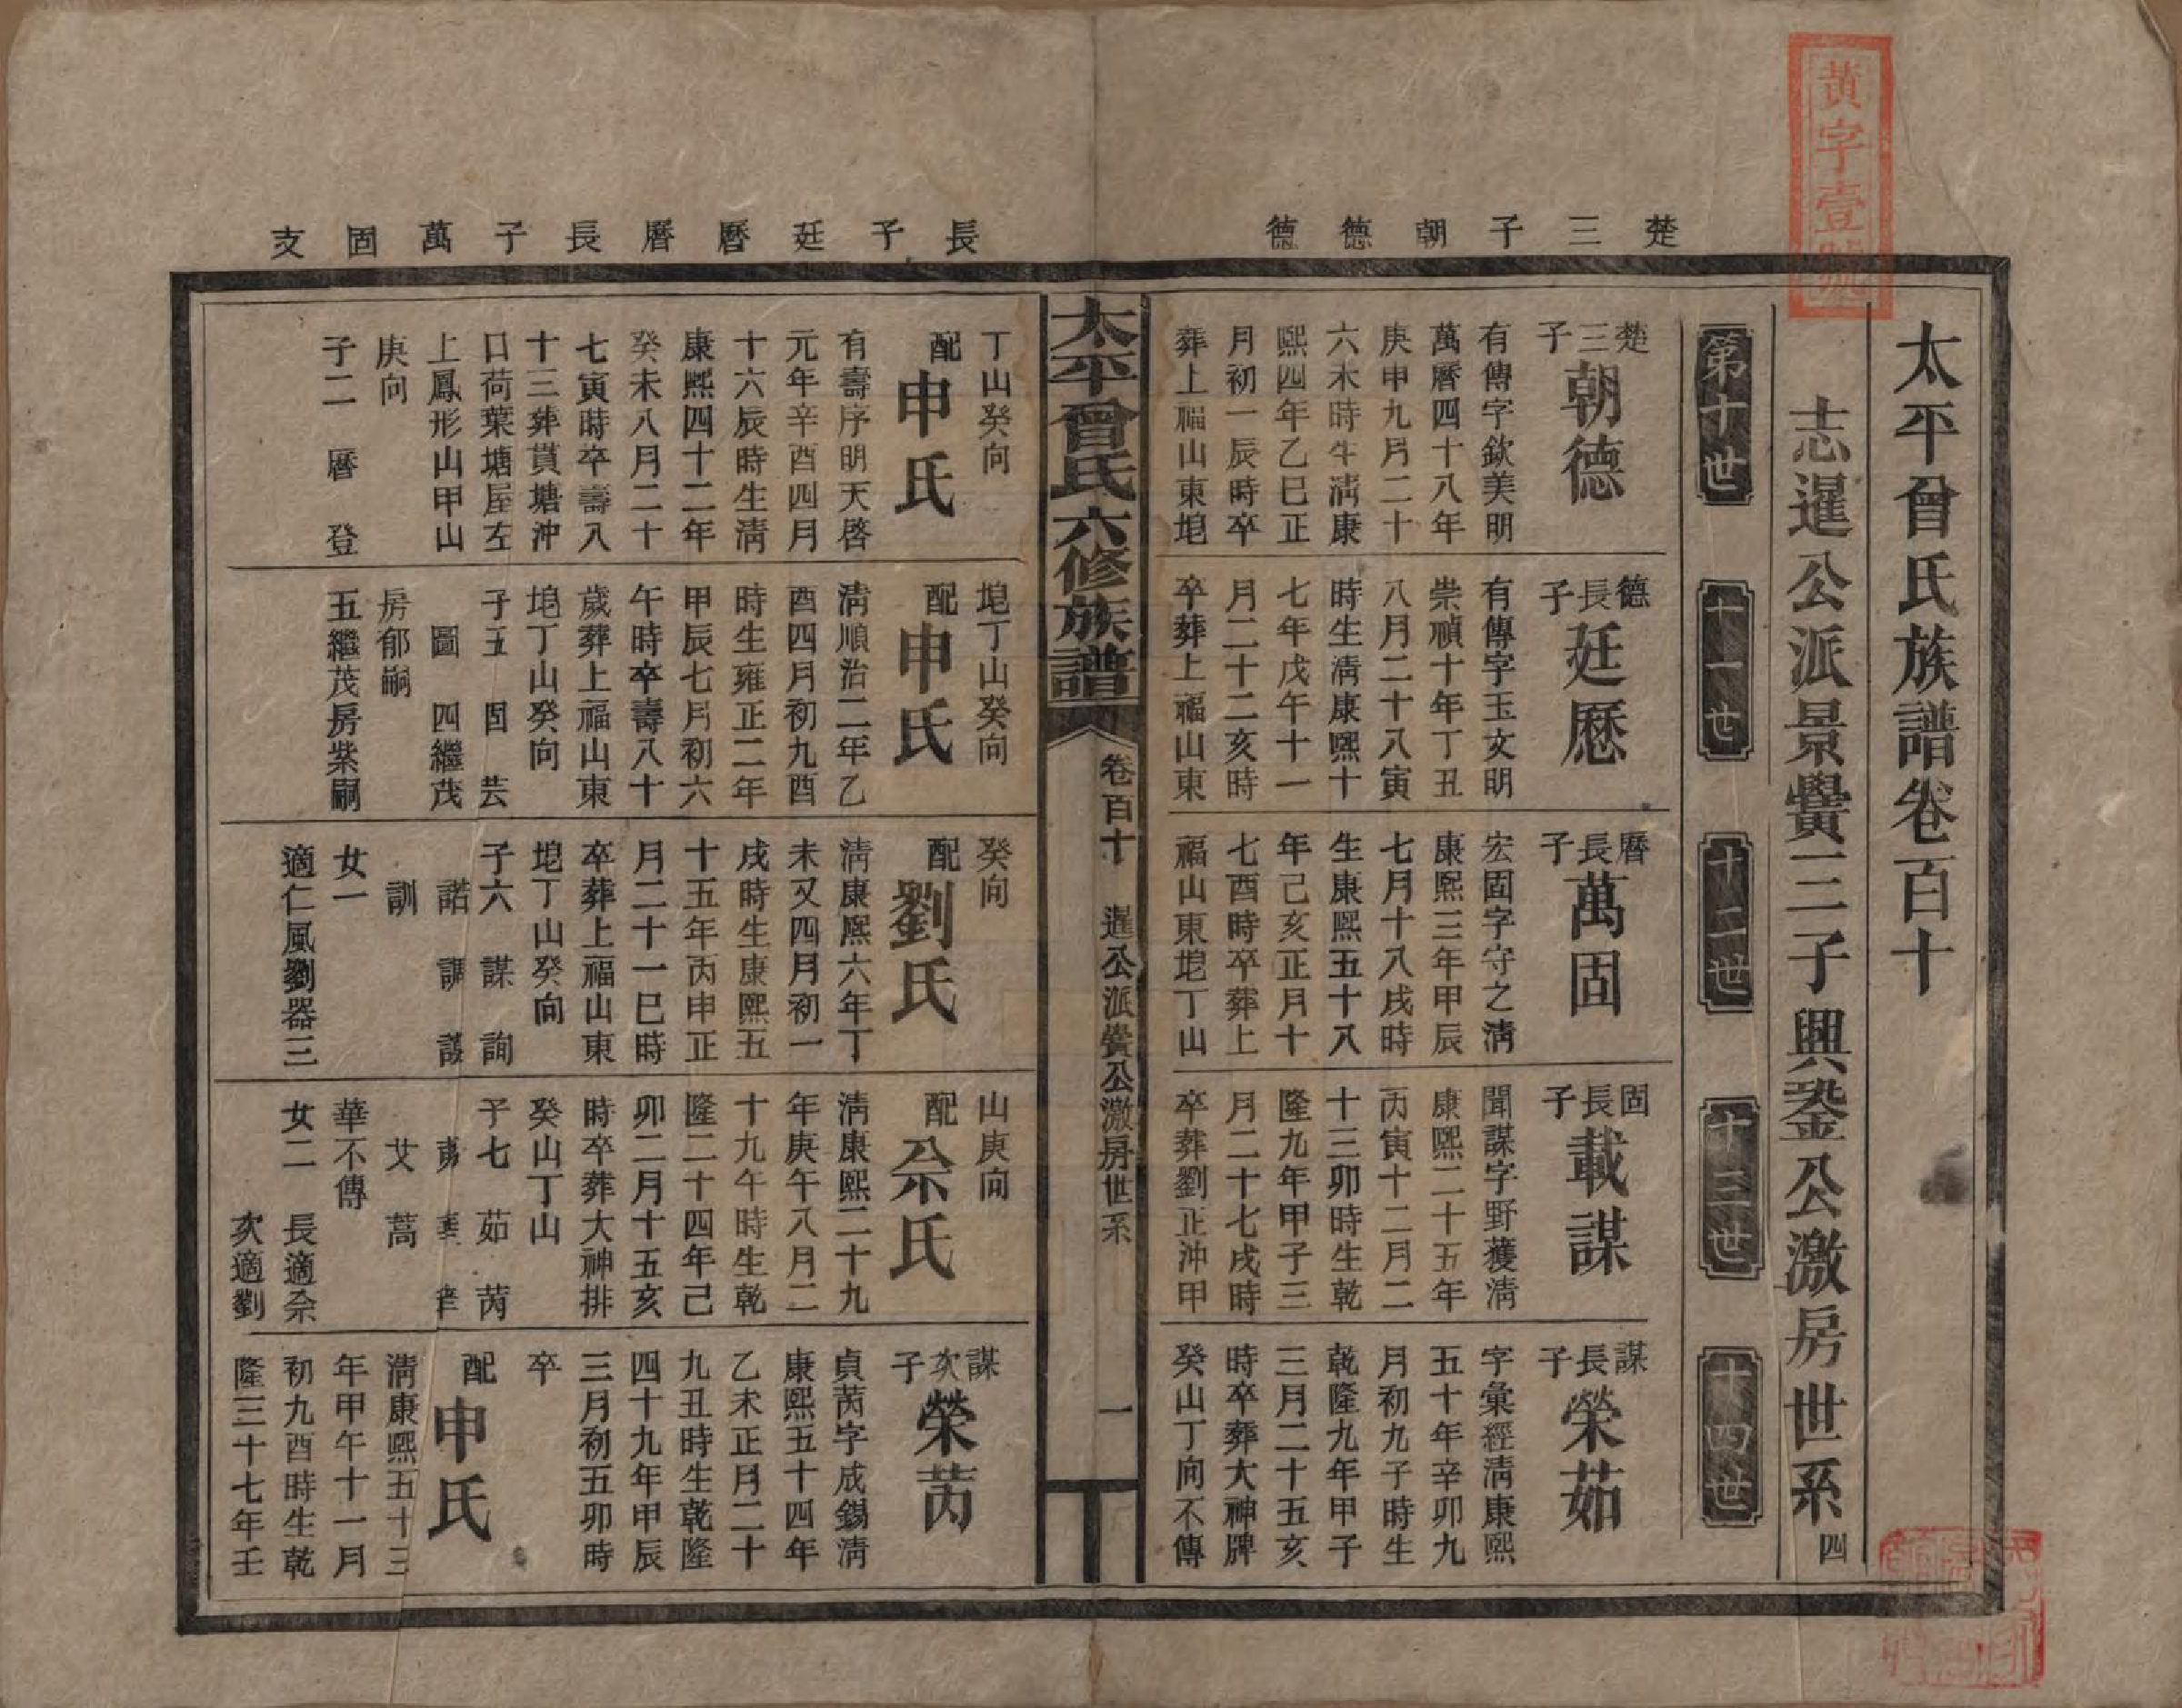 黃字壹號
太平曾氏族譜卷百十
志暹公派景黌三子興鋆公激房世系四
楚三子朝德德
長子廷曆曆長子萬固支
第十世
十一世
十二世
十三世
十四世
楚三子
朝德
有傳字欽美明
萬曆四十八年
庚申九月二十
六未時生清康
熙四年乙巳正
月初一辰時卒
葬上福山東垉
丁山癸向
配
申氏
有壽序明天啓
元年辛酉四月
十六辰時生清
康熙四十二年
癸未八月二十
七寅時卒壽八
十三葬貰塘沖
口荷葉塘屋左
上鳳形山甲山
庚向
子二 曆 登
德長子
廷曆
有傳字玉文明
崇禎十年丁丑
八月二十八寅
時生清康熙十
七年戊午十一
月二十二亥時
卒葬上福山東
垉丁山癸向
配
申氏
清順治二年乙
酉四月初九酉
時生雍正二年
甲辰七月初六
午時卒壽八十
歲葬上福山東
垉丁山癸向
子五 固 芸
圖 四繼茂
房郁嗣
五繼茂房紫嗣
曆長子
萬固
宏固字守之清
康熙三年甲辰
七月十八戌時
生康熙五十八
年己亥正月十
七酉時卒葬上
福山東垉丁山
癸向
配
劉氏
清康熙六年丁
未又四月初一
戌時生康熙五
十五年丙申正
月二十一巳時
卒葬上福山東
垉丁山癸向
子六 謀 詢
諾 調 謨
訓
女一
適仁風劉器三
固長子
載謀
聞謀字野蒦清
康熙二十五年
丙寅十二月二
十三卯時生乾
隆九年甲子三
月二十七戌時
卒葬劉正沖甲
山庚向
配
佘氏
清康熙二十九
年庚午八月二
十九午時生乾
隆二十四年己
卯二月十五亥
時卒葬大神排
癸山丁山
子七 茹 芮
艾 蒿
華不傳
女二 長適佘
次適劉
謀長子
榮茹
字彙經清康熙
五十年辛卯九
月初九子時生
乾隆九年甲子
三月二十五亥
時卒葬大神牌
癸山丁向不傳
謀次子
榮芮
貞芮字成錫清
康熙五十四年
乙未正月二十
九丑時生乾隆
四十九年甲辰
三月初五卯時
卒
配
申氏
清康熙五十三
年甲午十一月
初九酉時生乾
隆三十七年壬
太平曾氏六修族譜
卷百十 暹公派黌公激房世系
一